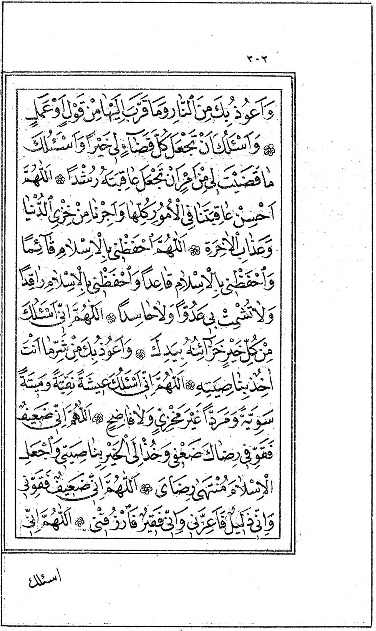 ٣٠٢
وَاَعُوذُ بِكَ مِنَ النَّارِ وَمَا قَرَّبَ اِلَيْهَا مِنْ قَوْلٍ اَوْ عَمَلٍ
۞ وَاَسْئَلُكَ اَنْ تَجْعَلَ كُلَّ قَضَاءٍ لِى خَيْرًا وَاَسْئَلُكَ
مَا قَضَيْتَ لِى مِنْ اَمْرٍ اَنْ تَجْعَلَ عَاقِبَتَهُ رُشْدًا ۞ اَللّٰهُمَّ
اَحْسِنْ عَاقِبَتَنَا فِى الْاُمُورِ كُلِّهَا وَاَجِرْنَا مِنْ خِزْىِ الدُّنْيَا
وَعَذَابِ الْاٰخِرَةِ ۞ اَللّٰهُمَّ احْفَظْنِى بِالْاِسْلَامِ قَائِمًا
وَاحْفَظْنِى بِالْاِسْلَامِ قَاعِدًا وَاحْفَظْنِى بِالْاِسْلَامِ رَاقِدًا
وَلَا تُشْمِتْ بِى عَدُوًّا وَلَا حَاسِدًا ۞ اَللّٰهُمَّ اِنِّى اَسْئَلُكَ
مِنْ كُلِّ خَيْرٍ خَزَائِنُهُ بِيَدِكَ ۞ وَاَعُوذُ بِكَ مِنْ شَرِّ مَا اَنْتَ
اٰخِذٌ بِنَاصِيَتِهِ ۞ اَللّٰهُمَّ اِنِّى اَسْئَلُكَ عِيشَةً نَقِيَّةً وَمِيتَةً
سَوِيَّةً وَمَرَدًّا غَيْرَ مَخْزِىٍّ وَلَا فَاضِحٍ ۞ اَللّٰهُمَّ اِنِّى ضَعِيفٌ
فَقَوِّ فِى رِضَاكَ ضَعْفِى وَخُذْ اِلَى الْخَيْرِ بِنَاصِيَتِى وَاجْعَلِ
الْاِسْلَامَ مُنْتَهٰى رِضَاىَ ۞ اَللّٰهُمَّ اِنِّى ضَعِيفٌ فَقَوِّنِى
وَاِنِّى ذَلِيلٌ فَاَعِزَّنِى وَاِنِّى فَقِيرٌ فَارْزُقْنِى ۞ اَللّٰهُمَّ اِنِّى
اسئلك